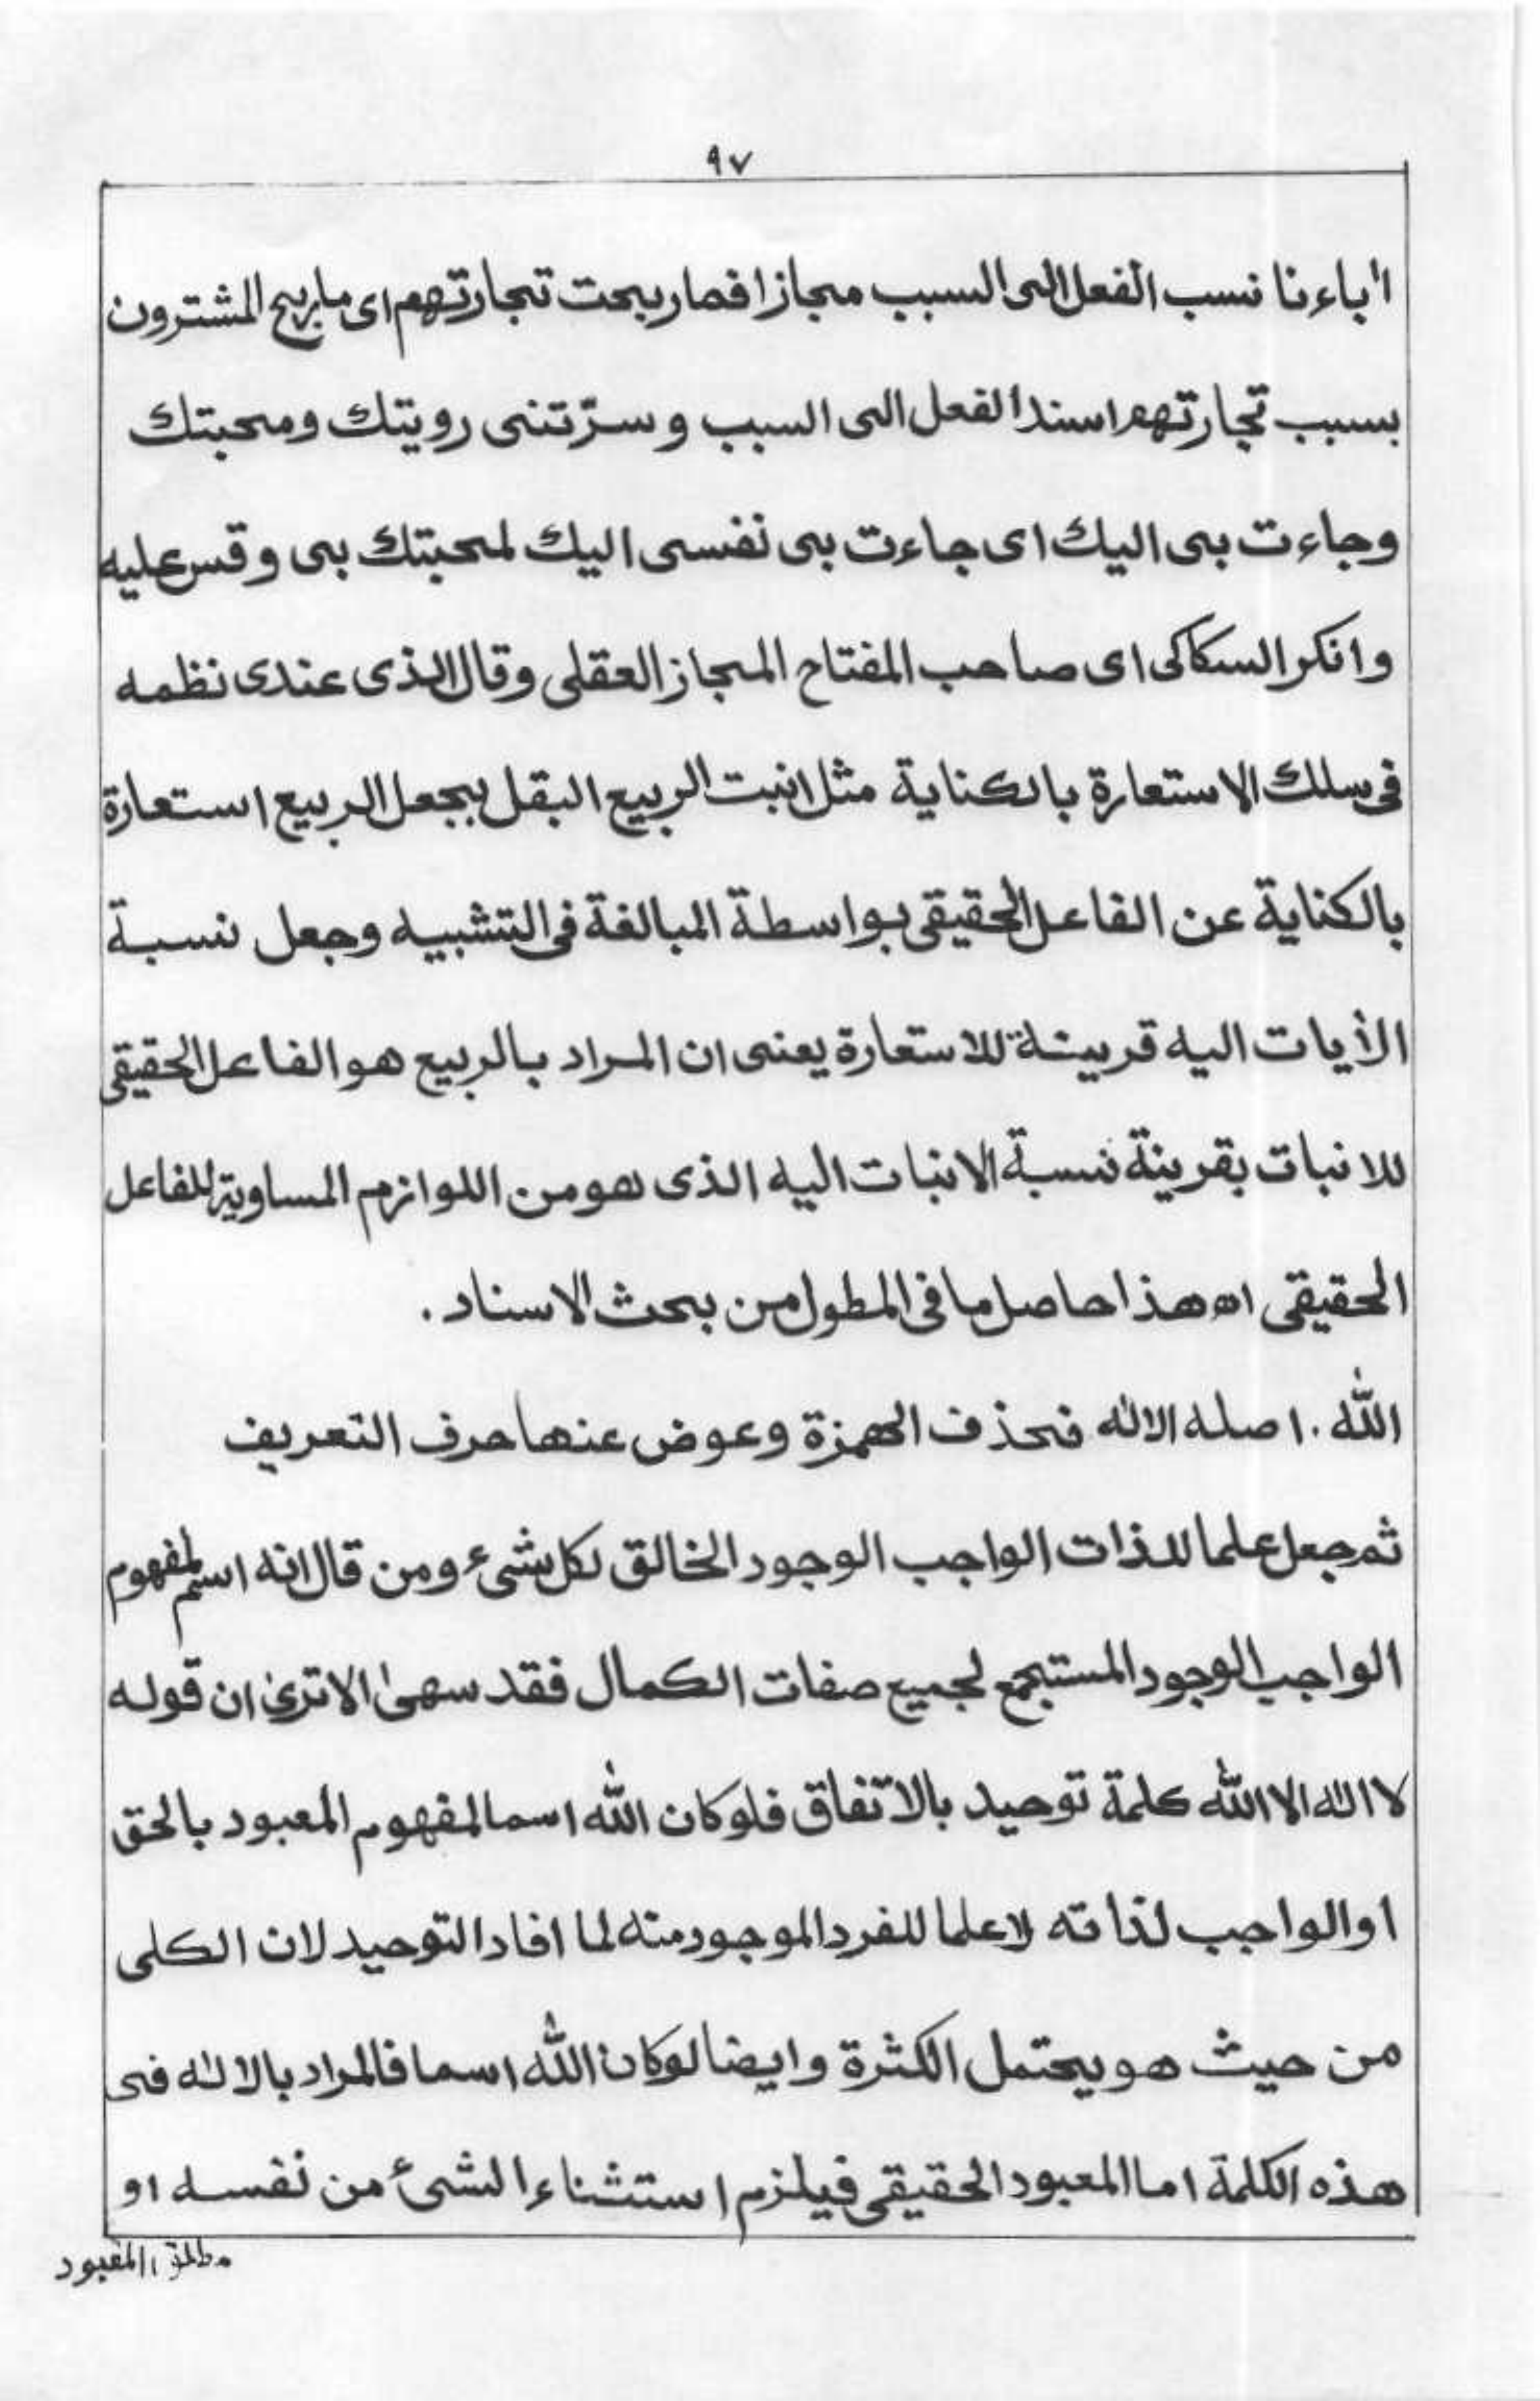 ٩٧
اٰباءنا نسب الفعل الى السبب مجازا فصار ربحت تجارتهم اى ما ربح المشترون
بسبب تجارتهم اسند الفعل الى السبب و سرّتنى رويتك ومحبتك
وجاءت بى اليك اى جاءت بى نفسى اليك لمحبتك بى وقس عليه
وانكر السكاكى اى صاحب المفتاح المجاز العقلى وقال الذى عندى نظمه
فى سلك الاستعارة بالكناية مثل انبت الربيع البقل بجعل الربيع استعارة
بالكناية عن الفاعل الحقيقى بواسطة المبالغة فى التشبيه وجعل نسبة
الأيات اليه قرينة للاستعارة يعنى ان المراد بالربيع هو الفاعل الحقيقى
للانبات بقرينة نسبة الانبات اليه الذى هو من اللوازم المساوية للفاعل
الحقيقى اه هذا حاصل ما فى المطول من بحث الاسناد .
اللّٰه . اصله الالٰه فحذف الهمزة وعوض عنها حرف التعريف
ثم جعل علما للذات الواجب الوجود الخالق لكل شىء ومن قال انه اسم لمفهوم
الواجب الوجود المستجمع لجميع صفات الكمال فقد سهىٰ الا ترىٰ ان قوله
لا الٰه الا اللّٰه كلمة توحيد بالاتفاق فلو كان اللّٰه اسما لمفهوم المعبود بالحق
او الواجب لذاته لا علما للفرد الموجود منه لما افاد التوحيد لان الكلى
من حيث هو يحتمل الكثرة وايضا لو كان اللّٰه اسما فالمراد بالالٰه فى
هذه الكلمة اما المعبود الحقيقى فيلزم استثناء الشئ من نفسه او
مطلق المعبود